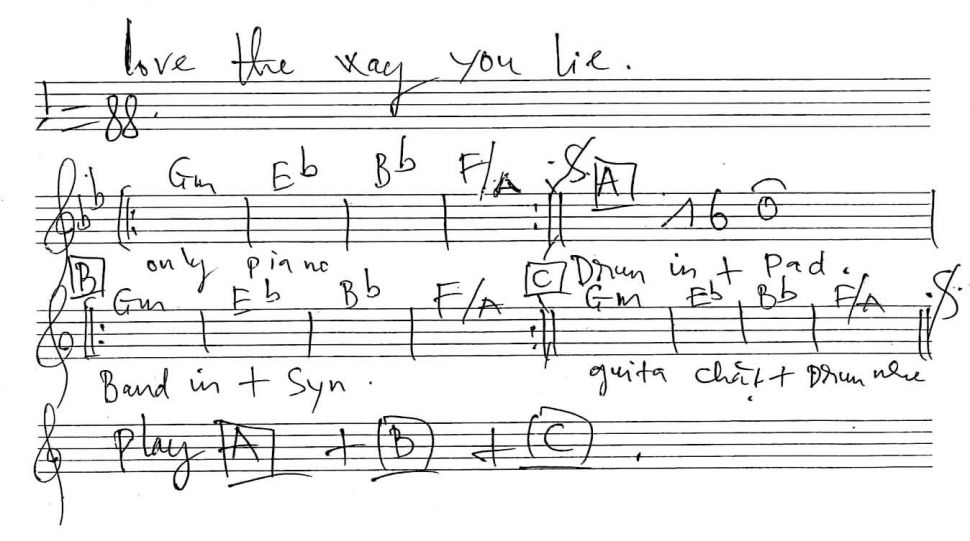 love the way you lie.
= 88.
Gm Eb Bb F/A A 16
only piano Drum in + Pad.
B Gm Eb Bb F/A C Gm Eb Bb F/A
Band in + Syn. guita chặt + Drum nhẹ
Play A + B + C.